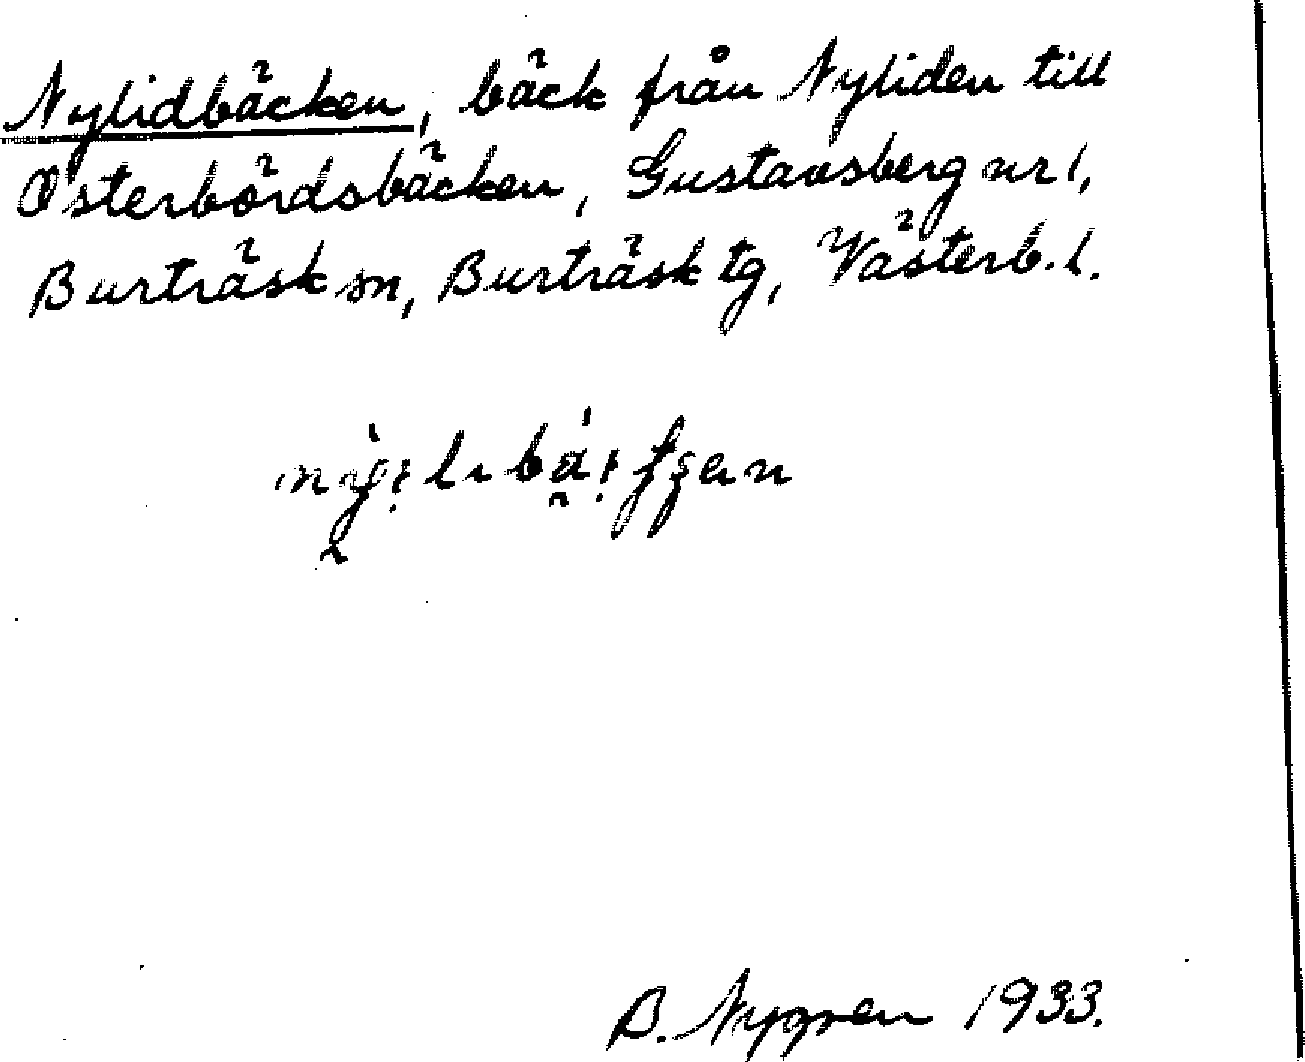 Nylidbäcken, bäck från Nyliden till
Österbördsbäcken, Gustavsberg nr 1,
Burträsk sn, Burträsk tg, Västerb. l.
B. Nygren 1933.